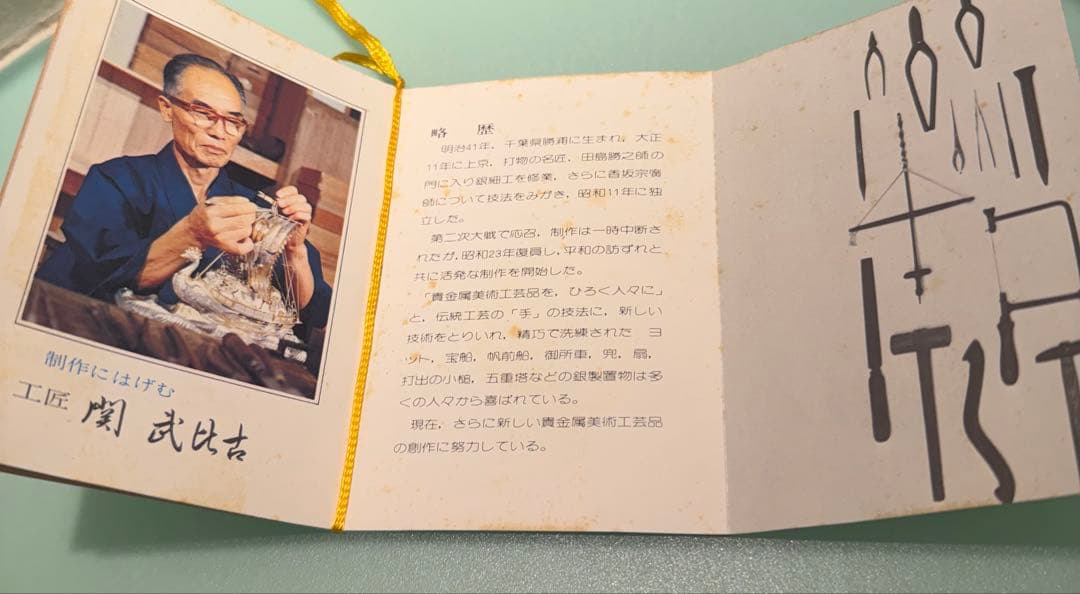 制作にはげむ
工匠 関 武比古
略 歴
明治41年,千葉県勝浦に生まれ,大正
11年に上京,打物の名匠,田島勝之師の
門に入り銀細工を修業,さらに香坂宗廣
師について技法をみがき,昭和11年に独
立した。
第二次大戦で応召,制作は一時中断さ
れたが,昭和23年復員し,平和の訪ずれと
共に活発な制作を開始した。
「貴金属美術工芸品を,ひろく人々に」
と,伝統工芸の「手」の技法に,新しい
技術をとりいれ,精巧で洗練された ヨ
ット,宝船,帆前船,御所車,兜,扇,
打出の小槌,五重塔などの銀製置物は多
くの人々から喜ばれている。
現在,さらに新しい貴金属美術工芸品
の創作に努力している。